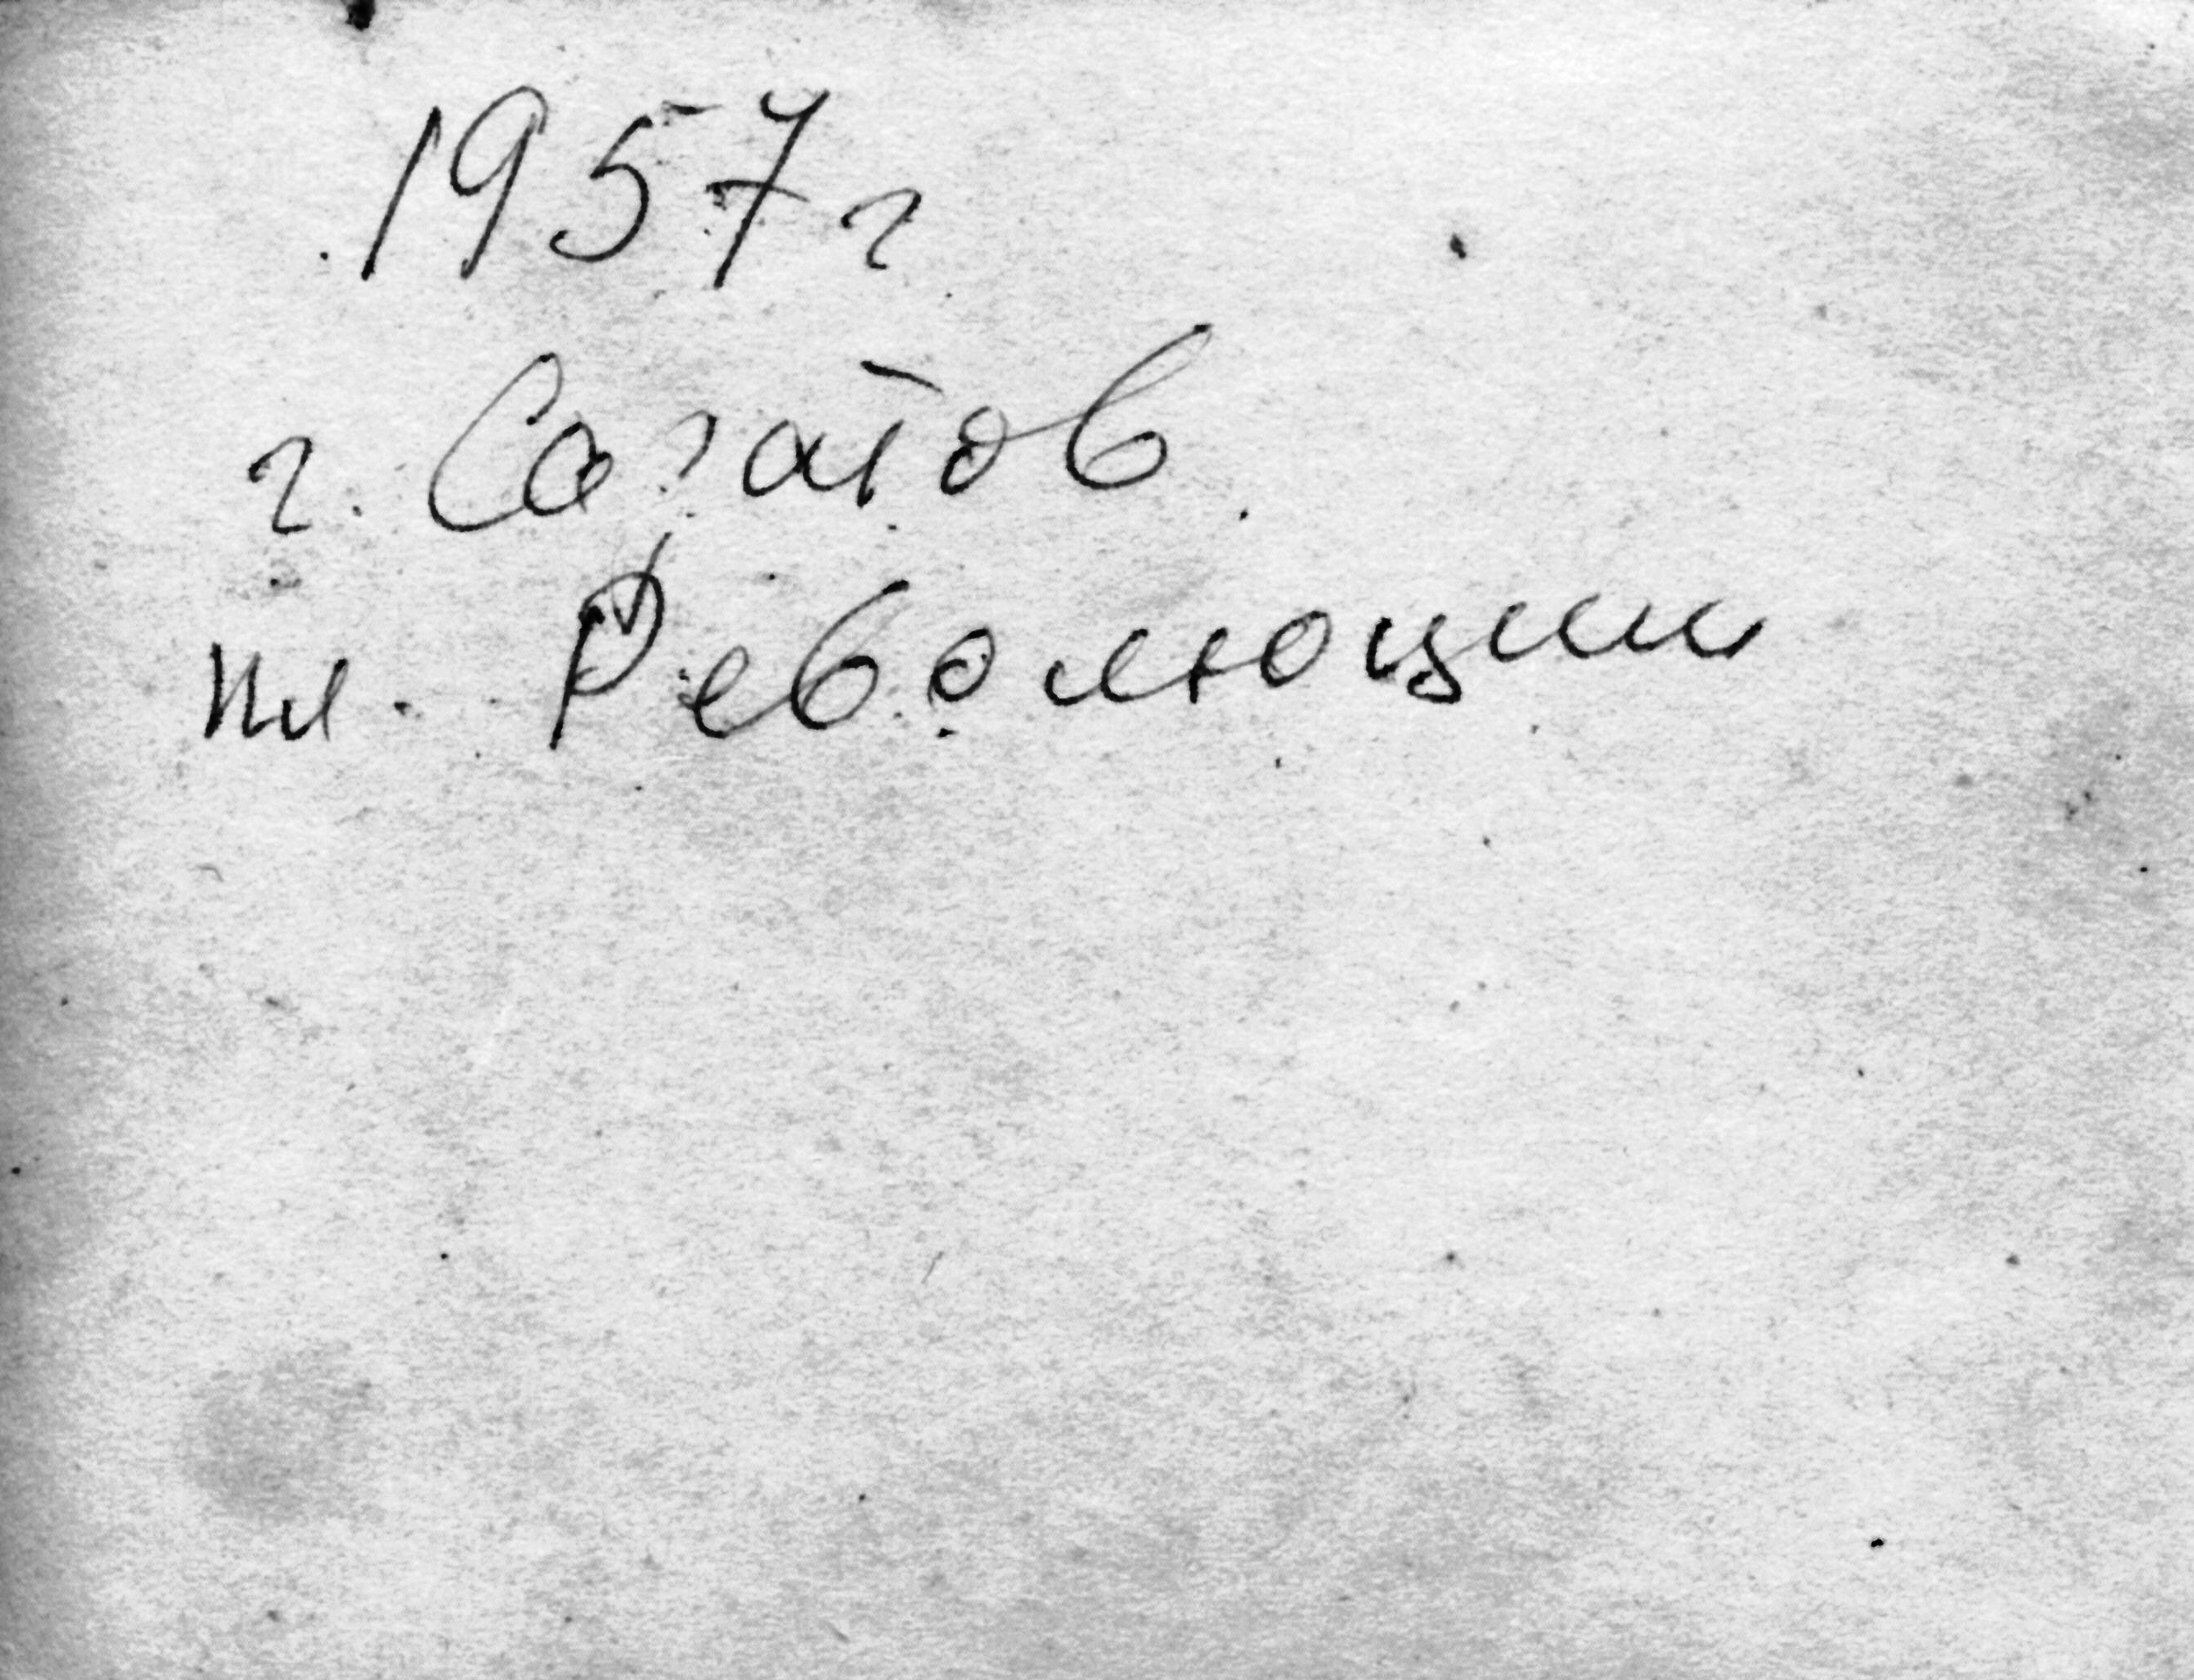 1957г
г. Саратов
пл. Революции